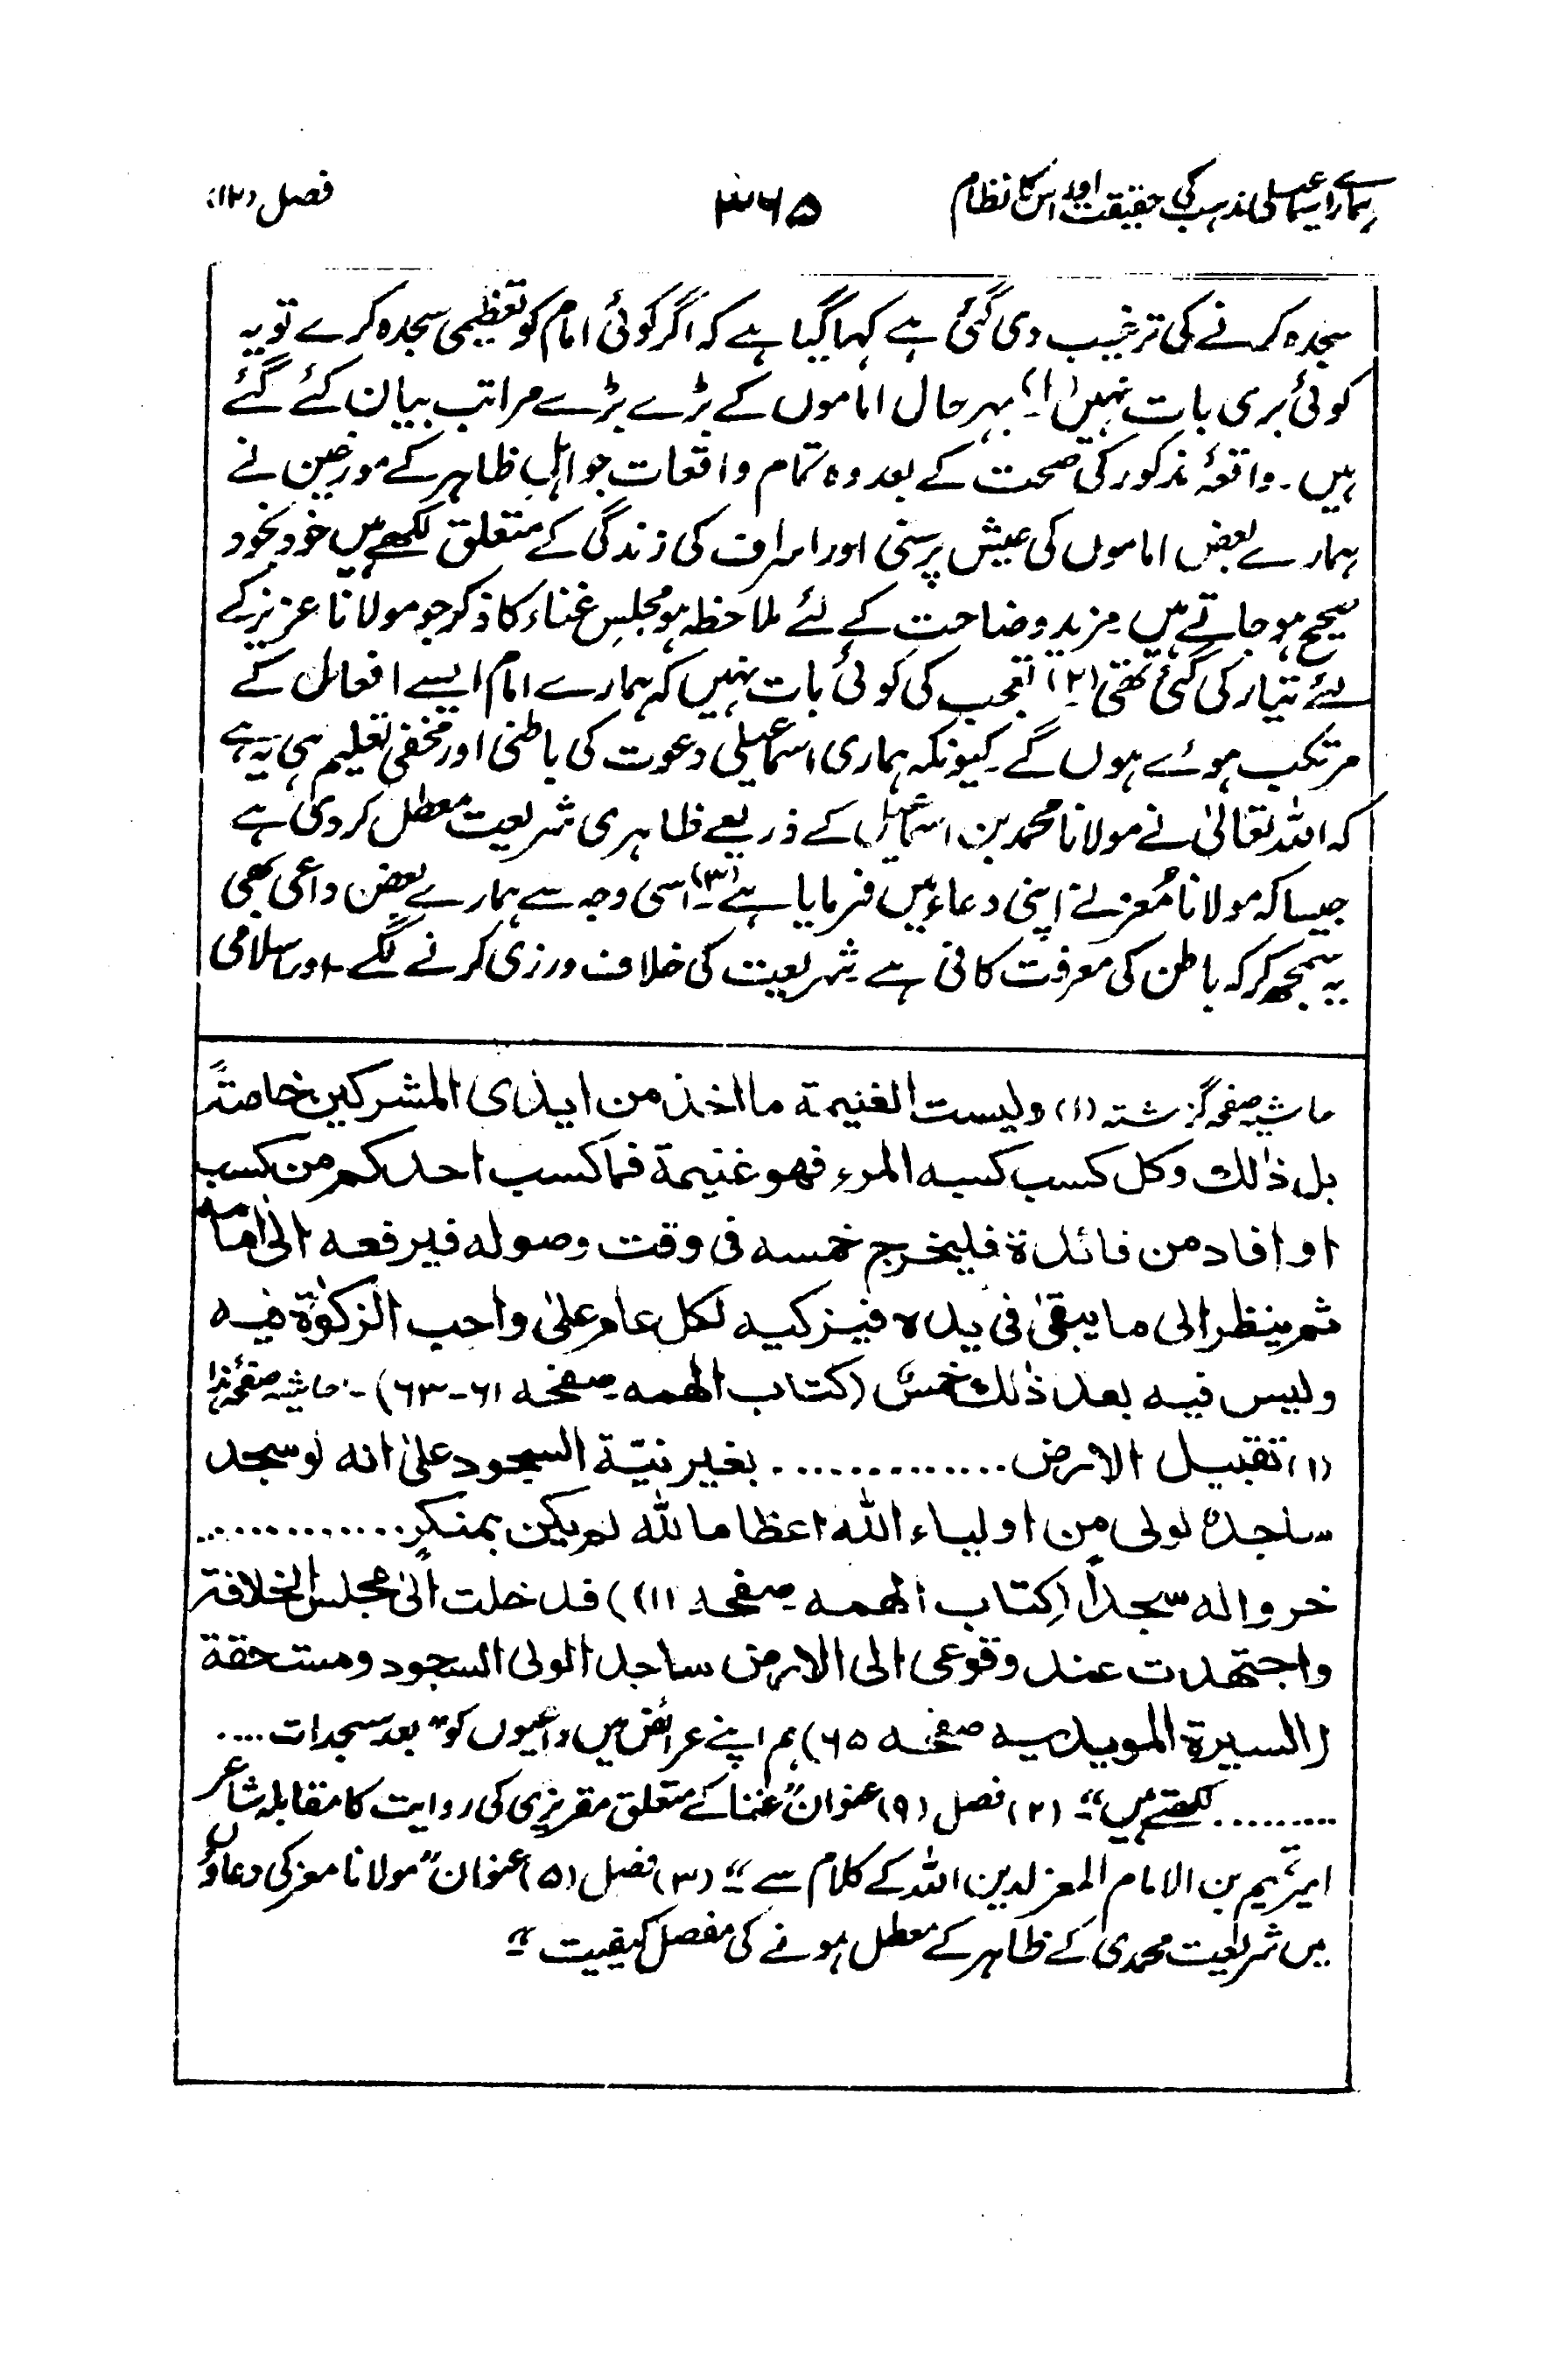 ہمارے اسماعیلی مذہب کی حقیقت اور اس کا نظام ۳۶۵ فصل (۱۲)
سجدہ کرنے کی ترغیب دی گئی ہے کہا گیا ہے کہ اگر کوئی امام کو تعظیمی سجدہ کرے تو یہ
کوئی بری بات نہیں (۱)۔ بہر حال اماموں کے بڑے بڑے مراتب بیان کئے گئے
ہیں۔ واقعۂ مذکور کی صحت کے بعد وہ تمام واقعات جو اہلِ ظاہر کے مورخین نے
ہمارے بعض اماموں کی عیش پرستی اور اسراف کی زندگی کے متعلق لکھے ہیں خود بخود
صحیح ہو جاتے ہیں۔ مزید وضاحت کے لئے ملاحظہ ہو مجلسِ غناء کا ذکر جو مولانا عزیز کے
لئے تیار کی گئی تھی (۲)۔ تعجب کی کوئی بات نہیں کہ ہمارے امام ایسے افعال کے
مرتکب ہوئے ہوں گے۔ کیونکہ ہماری اسماعیلی دعوت کی باطنی اور مخفی تعلیم ہی یہ ہے
کہ اللہ تعالیٰ نے مولانا محمد بن اسماعیل کے ذریعے ظاہری شریعت معطل کر دی ہے
جیسا کہ مولانا مُعز نے اپنی دعاء میں فرمایا ہے (۳)۔ اسی وجہ سے ہمارے بعض داعی بھی
یہ سمجھ کر کہ باطن کی معرفت کافی ہے شریعت کی خلاف ورزی کرنے لگے۔ اور اسلامی
حاشیہ صفحہ گزشتہ (۱) ولیست الغنیمۃ ما اخذ من ایدی المشرکین خاصتہً
بل ذٰلک وکل کسب کسبہ المرء فھو غنیمۃ فما کسب احدکم من کسب
او افاد من فائدۃ فلیخرج خمسہ فی وقت وصولہ فیرفعہ الیٰ امامہ
ثم ینظر الی ما یبقیٰ فی یدہ فیزکیہ لکل عام علیٰ واجب الزکوٰۃ فیہ
ولیس فیہ بعد ذٰلک خمسٌ (کتاب الھمہ۔ صفحہ ۶۱-۶۳)۔ حاشیہ صفحۂ ہٰذا
(۱) تقبیل الارض ............. بغیر نیّۃ السجود علیٰ انہ لو سجد
ساجدہ لولی من اولیاء اللہ اعظاما للہ لم یکن بمنکرٍ ............
خروا لہ سجداً (کتاب الھمہ۔ صفحہ ۱۱۱) فدخلت الیٰ مجلس الخلافۃ
واجتھدت عند وقوعی الی الارض ساجد الولی السجود ومستحقۃ
(السیرۃ المویدیہ صفحہ ۶۵) ہم اپنے عرائض میں داعیوں کو "بعد سجدات ....
......... لکھتے ہیں"۔ (۲) فصل (۹) عنوان "غنا کے متعلق مقریزی کی روایت کا مقابلہ شاعر
امیر تمیم بن الامام المعز لدین اللہ کے کلام سے"۔ (۳) فصل (۵) عنوان "مولانا معز کی دعاؤں
میں شریعت محمدی کے ظاہر کے معطل ہونے کی مفصل کیفیت"۔